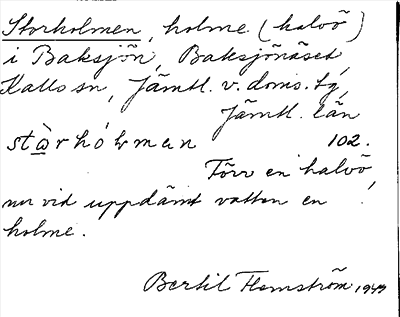 Storholmen, holme (halvö)
i Baksjön, Baksjönäset,
Kalls sn, Jämtl. v. doms. tg,
Jämtl. län
stɷ̀rhóɫman 102.
Förr en halvö,
nu vid uppdämt vatten en
holme.
Bertil Flemström 1947